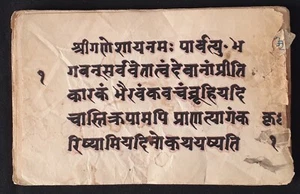 श्रीगणेशायनमः पार्वत्यु॰भ
गवनसर्ववेतात्वंदेवानांप्रीति
कारकं भैरवंकवचंब्रूहियदि
चास्तिक्रपामपि प्राणत्यागंक
रिष्यामियदिनोकययष्यति
१
क्रुः
१